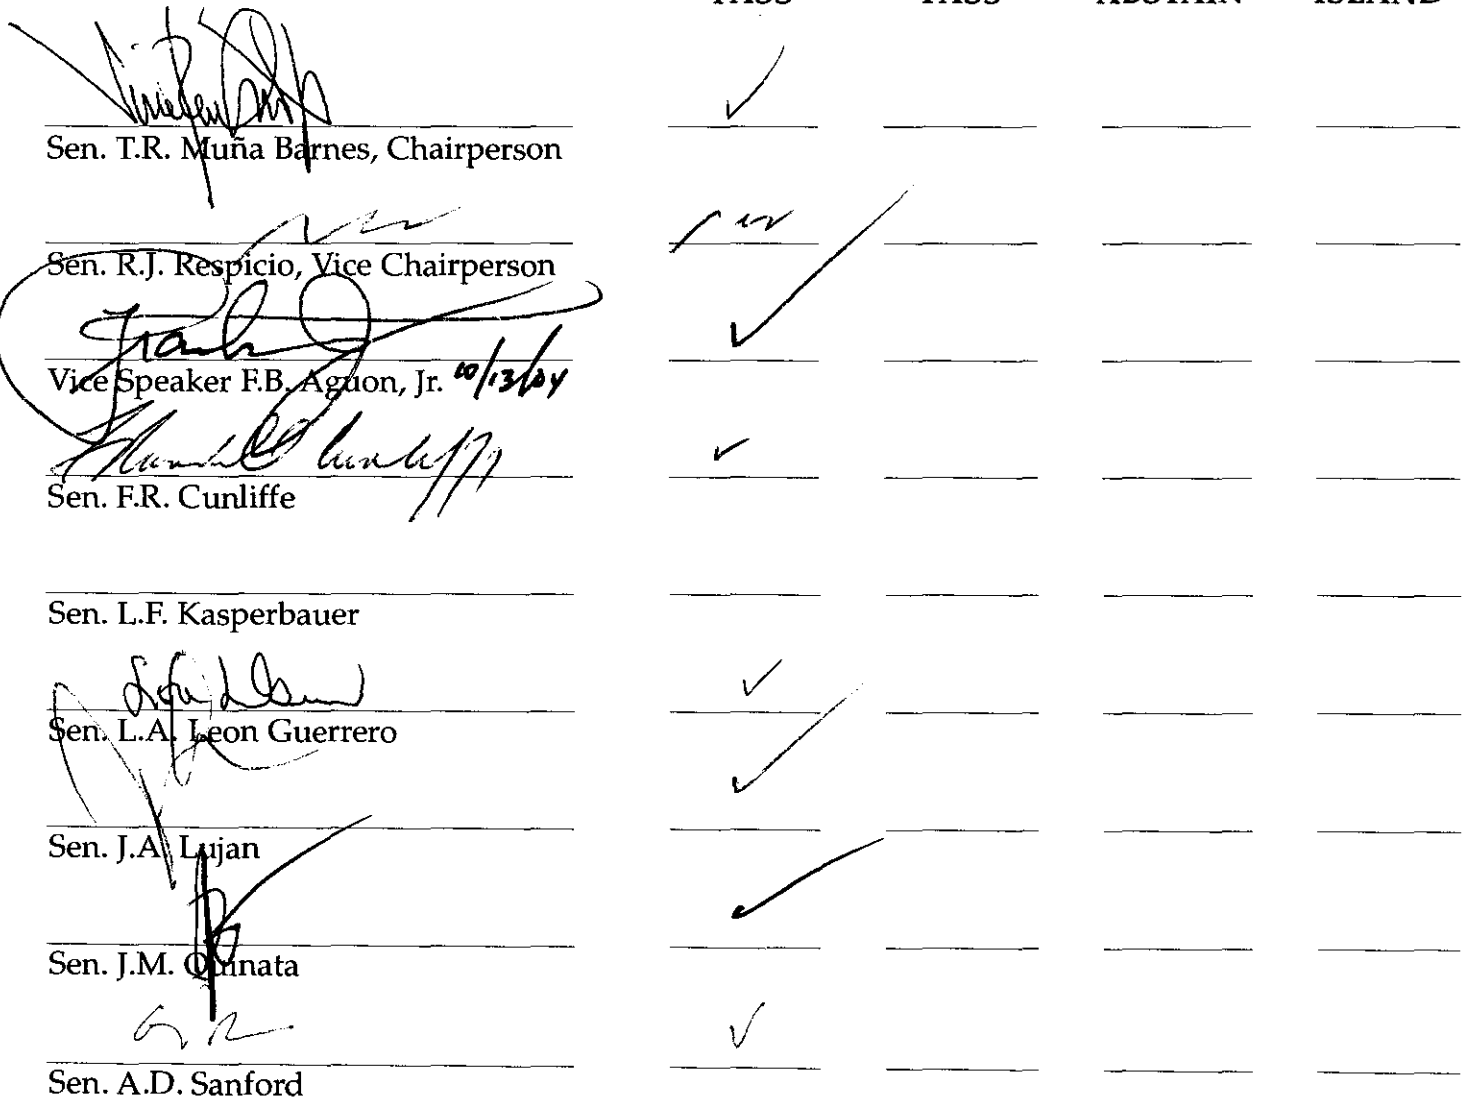 PASS PASS ABSTAIN ISLAND
Sen. T.R. Muña Barnes, Chairperson
Sen. R.J. Respicio, Vice Chairperson
Vice Speaker F.B. Aguon, Jr. 10/13/04
Sen. F.R. Cunliffe
Sen. L.F. Kasperbauer
Sen. L.A. Leon Guerrero
Sen. J.A. Lujan
Sen. J.M. Quinata
Sen. A.D. Sanford